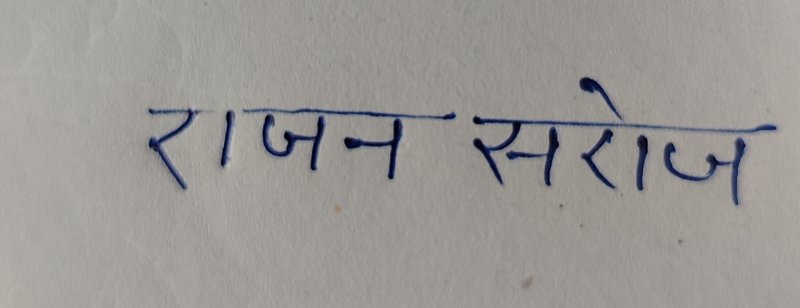 राजन सरोज